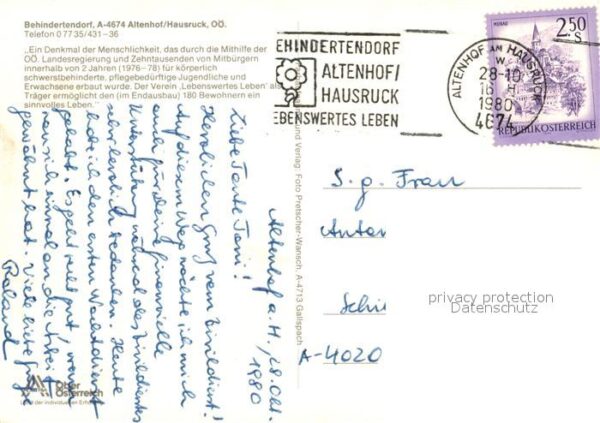 Behindertendorf, A-4674 Altenhof/Hausruck, OÖ.
Telefon 0 77 35/431-36
„Ein Denkmal der Menschlichkeit, das durch die Mithilfe der
OÖ. Landesregierung und Zehntausenden von Mitbürgern
innerhalb von 2 Jahren (1976-78) für körperlich
schwerstbehinderte, pflegebedürftige Jugendliche und
Erwachsene erbaut wurde. Der Verein „Lebenswertes Leben" als
Träger ermöglicht den (im Endausbau) 180 Bewohnern ein
sinnvolles Leben."
EHINDERTENDORF
ALTENHOF/
HAUSRUCK
EBENSWERTES LEBEN
ALTENHOF AM HAUSRUCK
W
28-10
16 H
1980
4674
MURAU
2.50
S
REPUBLIK ÖSTERREICH
Altenhof a. H., 28. Okt.
1980
Liebe Tante Toni!
Herzlichen Gruß vom Zivildienst!
Auf diesem Weg möchte ich mich
auch für deine finanzielle
Unterstützung während des Zivildienstes
herzlich bedanken. Heute
hab ich den ersten Nachtdienst
gehabt. Es geht sehr gut, wenn
man sich einmal an die Arbeit
gewöhnt hat. Viele liebe Grüße
Roland
und Verlag: Foto Pretscher-Wansch, A-4713 Gallspach
S. g. Frau
Schi
A-4020
privacy protection
Datenschutz
Ober
Österreich